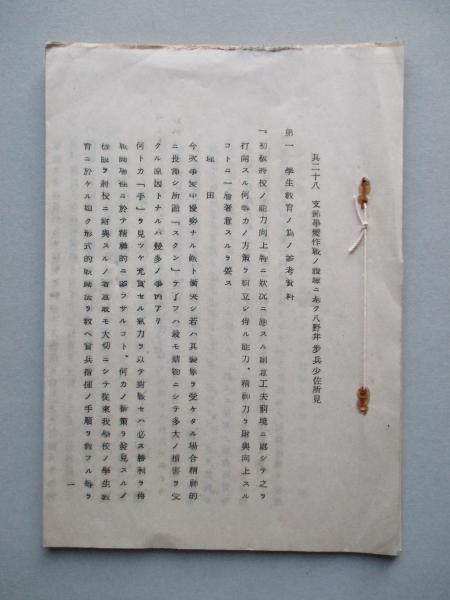 其二十八 支那事變作戰ノ經驗ニ基ク八野井步兵少佐所見
第一 學生教育ノ爲ノ參考資料
「初級將校ノ能力向上特ニ狀況ニ應スル創意工夫窮境ニ處シテ之ヲ
打開スル何等カノ方策ヲ樹立シ得ル能力、精神力ヲ附與向上スル
コトニ一層著意スルヲ要ス
理由
今次事變中優勢ナル敵ト衝突シ若ハ其襲擊ヲ受ケタル場合精神的
ニ畏縮シ所謂「スクン」テ了フハ最モ禁物ニシテ多大ノ損害ヲ受
クル原因トナルハ幾多ノ事例アリ
何トカ「手」ヲ見ツケ充實セル氣力ヲ以テ善戰セハ必ス勝利ヲ得
戰鬪場裡ニ於テ精神的ニ參ラサルコト、何カノ新策ヲ發見スルノ
機眼ヲ將校ニ附與スルノ著意最モ大切ニシテ從來我學校ノ學生教
育ニ於ケル如ク形式的戰鬪法ヲ教ヘ實兵指揮ノ手順ヲ教フル等ヲ
一